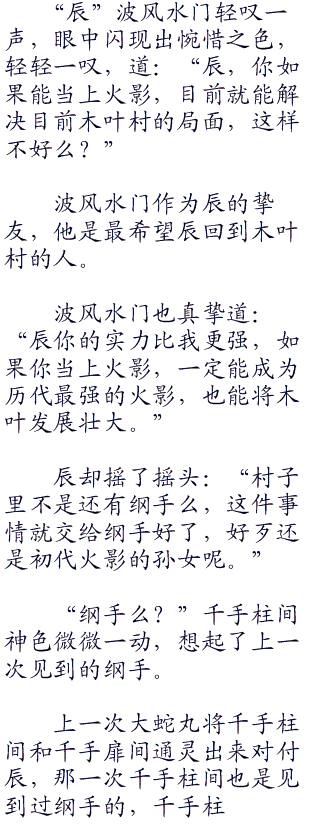 “辰”波风水门轻叹一
声，眼中闪现出惋惜之色，
轻轻一叹，道：“辰，你如
果能当上火影，目前就能解
决目前木叶村的局面，这样
不好么？”
波风水门作为辰的挚
友，他是最希望辰回到木叶
村的人。
波风水门也真挚道：
“辰你的实力比我更强，如
果你当上火影，一定能成为
历代最强的火影，也能将木
叶发展壮大。”
辰却摇了摇头：“村子
里不是还有纲手么，这件事
情就交给纲手好了，好歹还
是初代火影的孙女呢。”
“纲手么？”千手柱间
神色微微一动，想起了上一
次见到的纲手。
上一次大蛇丸将千手柱
间和千手扉间通灵出来对付
辰，那一次千手柱间也是见
到过纲手的，千手柱